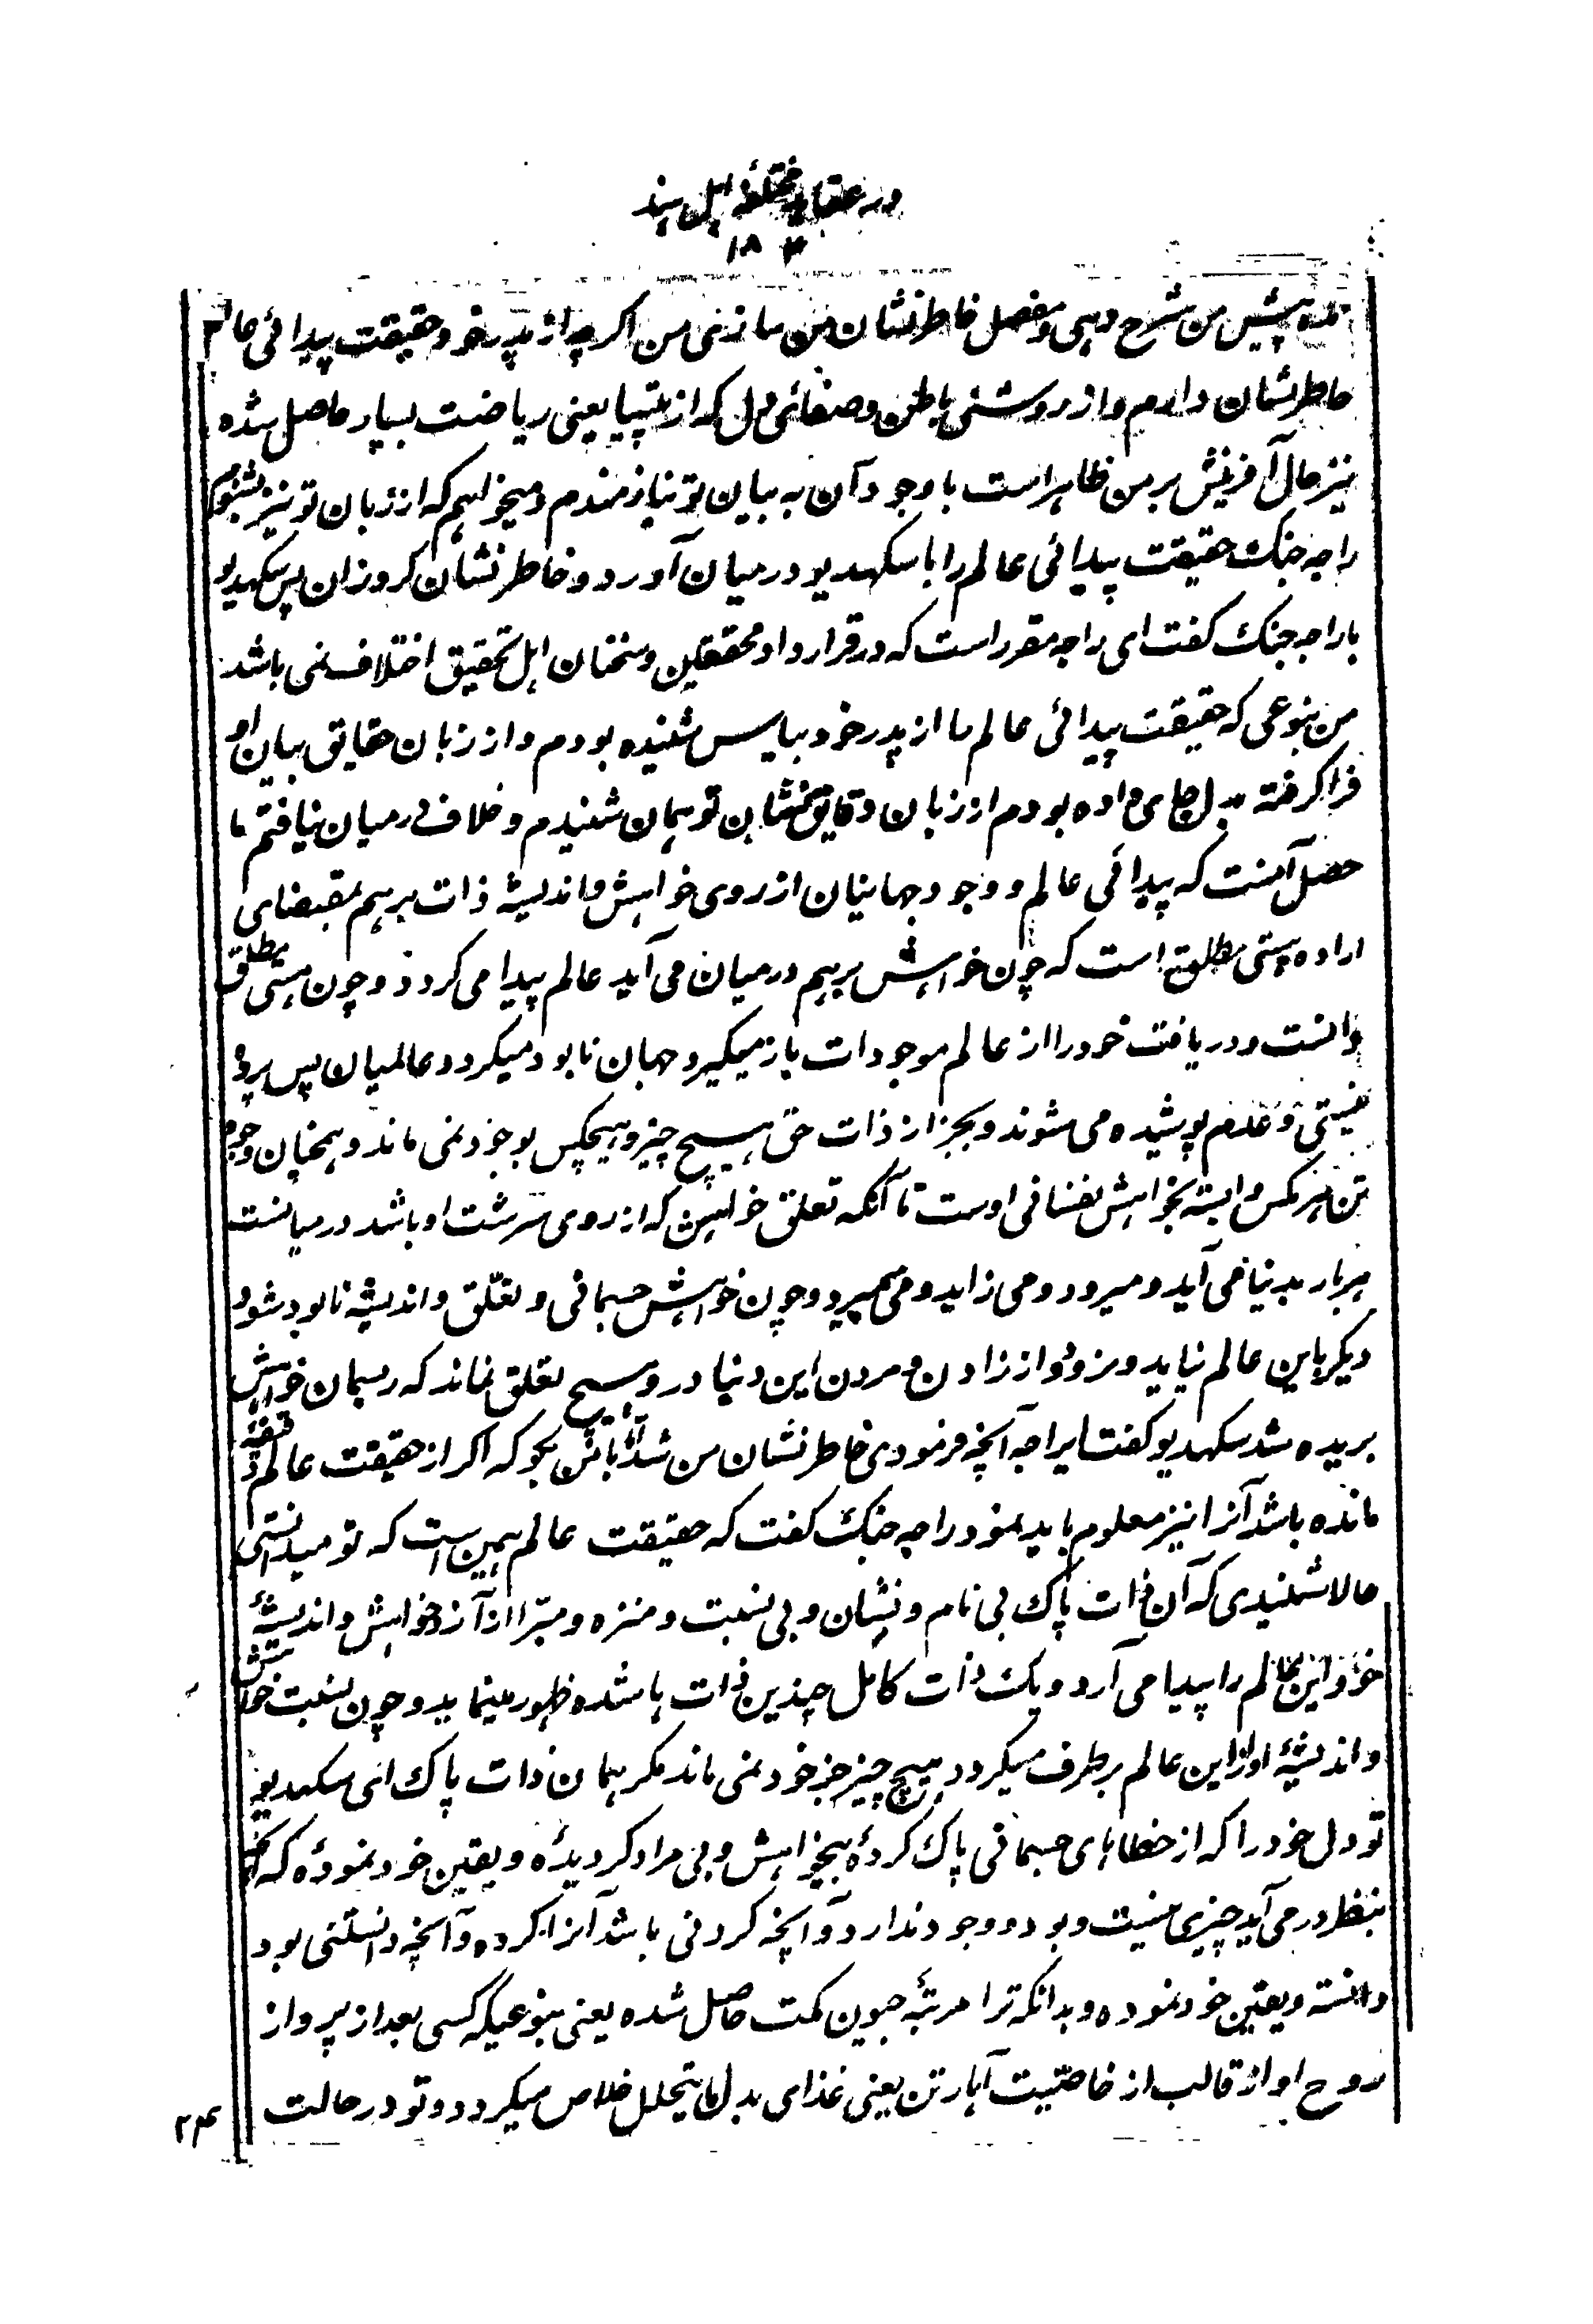 در عقاید مختلفهٔ اهل هند
۱۸۳
پیش من شرح دهی و مفصل خاطرنشان من سازی من اگرچه از پدر خود حقیقت پیدائی عالم
خاطرنشان دارم و از روشنی باطن و صفائی دل که از تپسیا یعنی ریاضت بسیار حاصل شده
نیز حال آفرینش بر من ظاهر است با وجود آن به بیان تو نیازمندم و میخواهم که از زبان تو نیز بشنوم
راجه جنک حقیقت پیدائی عالم را با سکهدیو در میان آورد و خاطرنشان کرد و زان پس سکهدیو
با راجه جنک گفت ای راجه مقرر است که در قرارداد محققین و سخنان اهل تحقیق اختلاف نمی باشد
من بنوعی که حقیقت پیدائی عالم را از پدر خود بیاس شنیده بودم و از زبان حقایق بیان او
فرا گرفته بدل جای داده بودم از زبان دقایق نشان تو همان شنیدم و خلاف در میان نیافتم ما
حصل آنست که پیدائی عالم و وجود جهانیان از روی خواهش و اندیشهٔ ذات برهم بمقتضای
اراده هستی مطلق است که چون خواهش برهم در میان می آید عالم پیدا می گردد و چون هستی مطلق
دانست و دریافت خود را از عالم موجودات باز میگیرد جهان نابود میگردد و عالمیان پس پردهٔ
نیستی و عدم پوشیده می شوند و بجز از ذات حق هیچ چیز و هیچکس بوجود نمی ماند و همچنان وجود
تن هر کس وابسته بخواهش نفسانی اوست تا آنکه تعلق خواهش که از روی سرشت او باشد در میانست
هر بار بدنیا می آید و میرود و می زاید و می میرد و چون خواهش جسمانی و تعلّق و اندیشه نابود شود
دیگر باین عالم نیاید و نرود و از زادن و مردن این دنیا در و هیچ تعلق نماند که ریسمان خواهش
بریده شد سکهدیو گفت ایراجه آنچه فرمودی خاطرنشان من شد اما با من بگو که اگر از حقیقت عالم دقیقهٔ
مانده باشد آنرا نیز معلوم باید نمود راجه جنک گفت که حقیقت عالم همین است که تو میدانستی
حالا شنیدی که آن ذات پاک بی نام و نشان و بی نسبت و منزه و مبرا از آز و خواهش و اندیشهٔ
خود این عالم را پیدا می آرد و یک ذات کامل چندین ذات ها شده ظهور مینماید و چون نسبت خواهش
و اندیشهٔ او از این عالم برطرف میگردد هیچ چیز جز خود نمی ماند مگر همان ذات پاک ای سکهدیو
تو دل خود را که از خطاهای جسمانی پاک کردهٔ بیخواهش و بی مراد گردیدهٔ و یقین خود نمودهٔ که آنچه
بنظر در می آید چیزی نیست و بود و وجود ندارد و آنچه کردنی باشد آنرا کرده و آنچه دانستنی بود
دانسته و یقین خود نموده و بدانکه ترا مرتبهٔ جیون مکت حاصل شده یعنی بنوعیکه کسی بعد از پرواز
روح او از قالب از خاصیت آهار تن یعنی غذای بدل مایتحلل خلاص میگردد و تو در حالت